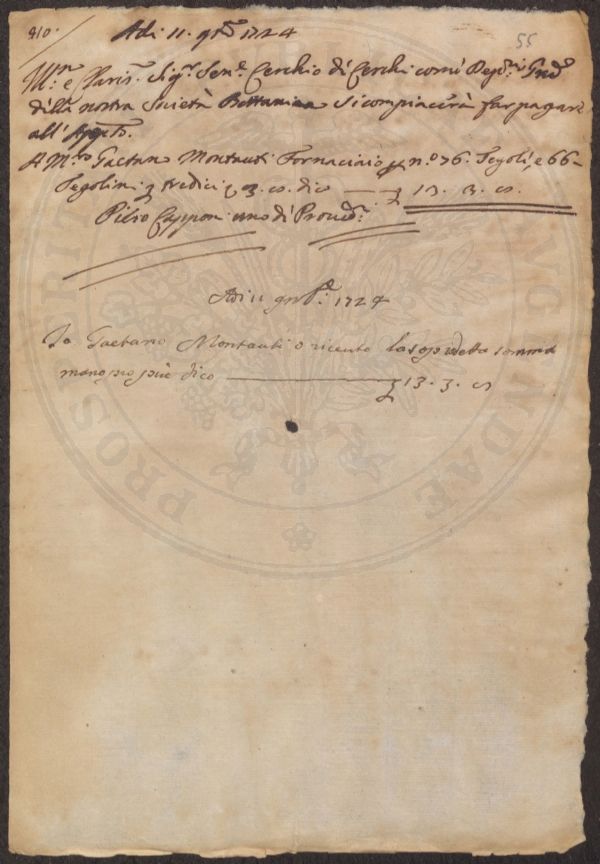 210.
55
Adi 11. 9bre 1724
Ill.mo e Claris.mo Sig.r Sen.e Cerchio di Cerchi come Dep.rio Gnãle
della nostra Società Bottanica si compiacerà far pagare
all'
A M.ro Gaetano Montauti Fornaciaio p n.o 76. Tegoli, e 66
Tegolini £ tredici, 3. cs. dico — £ 13. 3. cs.
Pitro Capponi uno di Proved.ri
Adi 11 9mbre 1724
Io Gaetano Montauti o riceuto la sopradetta somma
mano pro pria dico — £ 13. 3. cs
PROS RITA AVG NDAE